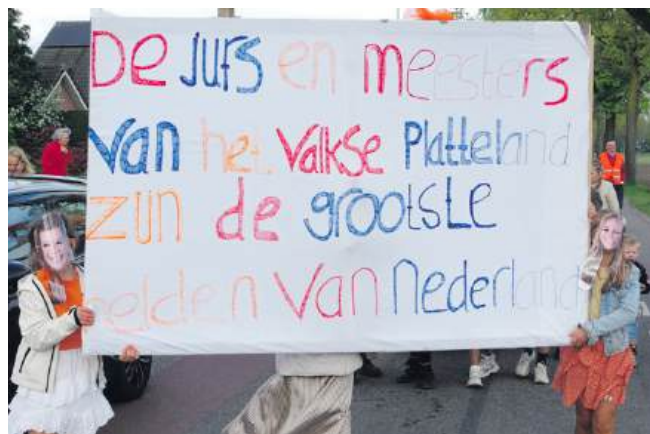 De jufs en meesters
van het Valkse Platteland
zijn de grootste
helden van Nederland